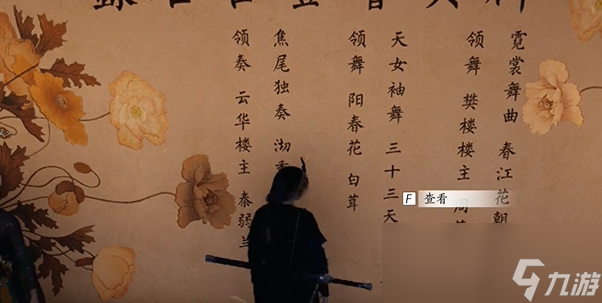 霓裳舞曲 春江花朝
领舞 樊楼楼主
天女袖舞 三十三天
领舞 阳春花 白茸
焦尾独奏 沏
领奏 云华楼主 秦弱兰
F 查看
九游